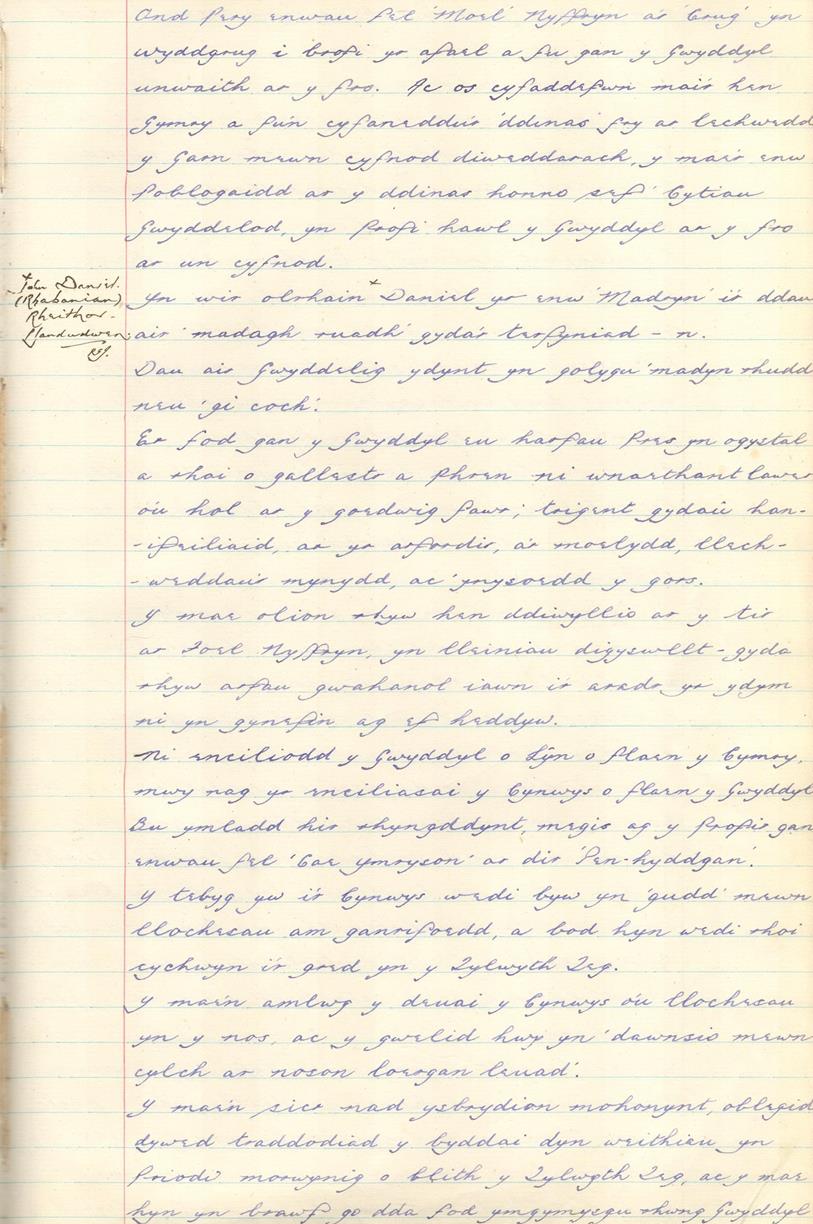 Ond pery enwau fel 'Moel' Nyffryn a'r 'Crug' yn
wyddgrug i brofi yr afael a fu gan y Gwyddyl
unwaith ar y fro. Ac os cyfaddefwn mai'r hen
Gymry a fu'n cyfaneddu'r 'ddinas' fry ar lechwedd
y Garn mewn cyfnod diweddarach, y mae'r enw
poblogaidd ar y ddinas honno sef 'Cytiau
Gwyddelod, yn profi hawl y Gwyddyl ar y fro
ar un cyfnod.
x John Daniel.
(Rhabanian)
Rheithor -
Llandudwen;
Yn wir olrhain x Daniel yr enw 'Madryn' i'r ddau
air 'madagh ruadh' gyda'r terfyniad - n.
Dau air Gwyddelig ydynt yn golygu 'madyn rhudd
neu 'gi coch'.
Er fod gan y Gwyddyl eu harfau pres yn ogystal
a rhai o gallestr a phren ni wnaethant lawer
o'u hol ar y goedwig fawr; trigent gyda'u han-
-ifeiliaid, ar yr arfordir, a'r moelydd, llech-
-weddau'r mynydd, ac ynysoedd y gors.
Y mae olion rhyw hen ddiwyllio ar y tir
ar Foel Nyffryn, yn lleiniau digyswllt - gyda
rhyw arfau gwahanol iawn i'r aradr yr ydym
ni yn gynefin ag ef heddyw.
Ni enciliodd y Gwyddyl o Lŷn o flaen y Cymry,
mwy nag yr enciliasai y Cynwys o flaen y Gwyddyl
Bu ymladd hir rhyngddynt, megis ag y profir gan
enwau fel 'Cae ymryson' ar dir 'Pen-hyddgan'.
Y tebyg yw i'r Cynwys wedi byw yn 'gudd' mewn
llochesau am ganrifoedd, a bod hyn wedi rhoi
cychwyn i'r gred yn y Tylwyth Teg.
Y mae'n amlwg y deuai y Cynwys o'u llochesau
yn y nos, ac y gwelid hwy yn 'dawnsio mewn
cylch ar noson loergan leuad'.
Y mae'n sicr nad ysbrydion mohonynt, oblegid
dywed traddodiad y byddai dyn weithieu yn
priodi morwynig o blith y Tylwyth Teg, ac y mae
hyn yn brawf go dda fod ymgymysgu rhwng Gwyddyl